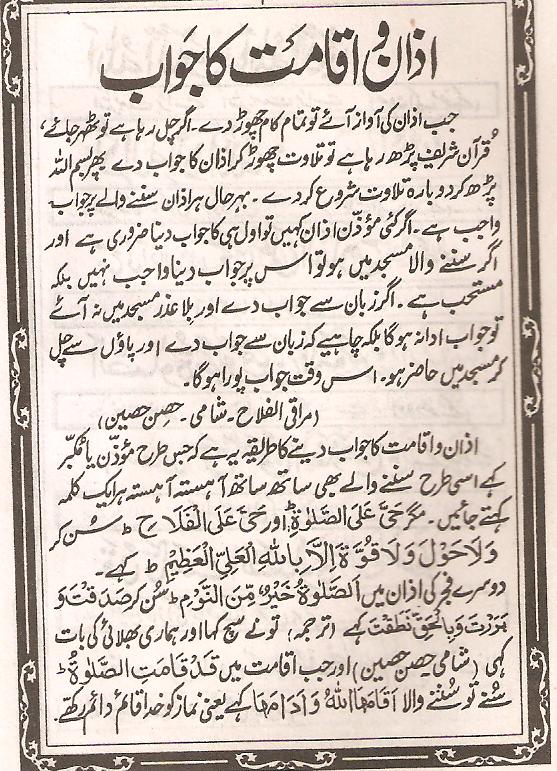 اذان و اقامت کا جواب
جب اذان کی آواز آئے تو تمام کام چھوڑ دے۔ اگر چل رہا ہے تو ٹھہر جائے،
قرآن شریف پڑھ رہا ہے تو تلاوت چھوڑ کر اذان کا جواب دے پھر بسم اللہ
پڑھ کر دوبارہ تلاوت شروع کر دے۔ بہرحال ہر اذان سننے والے پر جواب
واجب ہے۔ اگر کئی مؤذّن اذان کہیں تو اول ہی کا جواب دینا ضروری ہے اور
اگر سننے والا مسجد میں ہو تو اس پر جواب دینا واجب نہیں بلکہ
مستحب ہے۔ اگر زبان سے جواب دے اور بلا عذر مسجد میں نہ آئے
تو جواب ادا نہ ہوگا بلکہ چاہیے کہ زبان سے جواب دے اور پاؤں سے چل
کر مسجد میں حاضر ہو۔ اس وقت جواب پورا ہوگا۔
(مراقی الفلاح۔ شامی۔ حِصن حصین)
اذان و اقامت کا جواب دینے کا طریقہ یہ ہے کہ جس طرح مؤذّن یا مکبّر
کہے اسی طرح سننے والے بھی ساتھ ساتھ آہستہ آہستہ ہر ایک کلمہ
کہتے جائیں۔ مگر حَیَّ عَلَی الصَّلٰوۃِ ط اور حَیَّ عَلَی الْفَلَاحِ ط سُن کر
وَلَا حَوْلَ وَلَا قُوَّۃَ اِلَّا بِاللّٰہِ الْعَلِیِّ الْعَظِیْمِ ط کہے۔
دوسرے فجر کی اذان میں اَلصَّلٰوۃُ خَیْرٌ مِّنَ النَّوْمِ ط سُن کر صَدَقْتَ وَ
بَرَرْتَ وَبِالْحَقِّ نَطَقْتَ کہے (ترجمہ) تو نے سچ کہا اور ہماری بھلائی کی بات
کہی (شامی۔ حِصن حصین) اور جب اقامت میں قَدْ قَامَتِ الصَّلٰوۃُ ط
سُنے تو سُننے والا اَقَامَہَا اللّٰہُ وَ اَدَامَہَا کہے یعنی نماز کو خدا قائم و دائم رکھے۔